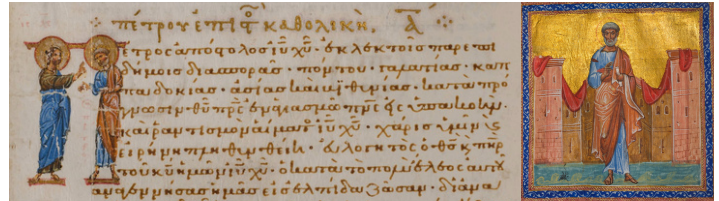 πέτρου ἐπιστολὴ καθολικὴ. Α
Πέτρος ἀπόστολος ἰῦ χῦ. ἐκλεκτοῖς παρεπι
δήμοις διασπορᾶς· πόντου· γαλατίας· καπ
παδοκίας· ἀσίας καὶ βιθυνίας· κατὰ πρό
γνωσιν θῦ πρς ἐν ἁγιασμῶ πνς εἰς ὑπακοὴν·
καὶ ῥαντισμὸν αἵματος ἰῦ χῦ· χάρις ὑμῖν καὶ
εἰρήνη πληθυνθείη· εὐλογητὸς ὁ θς καὶ πηρ
τοῦ κυ ἡμῶν ἰῦ χῦ· ὁ κατὰ τὸ πολὺ ἔλεος αὐτοῦ
ἀναγεννήσας ἡμᾶς εἰς ἐλπίδα ζῶσαν· δι ἀνα